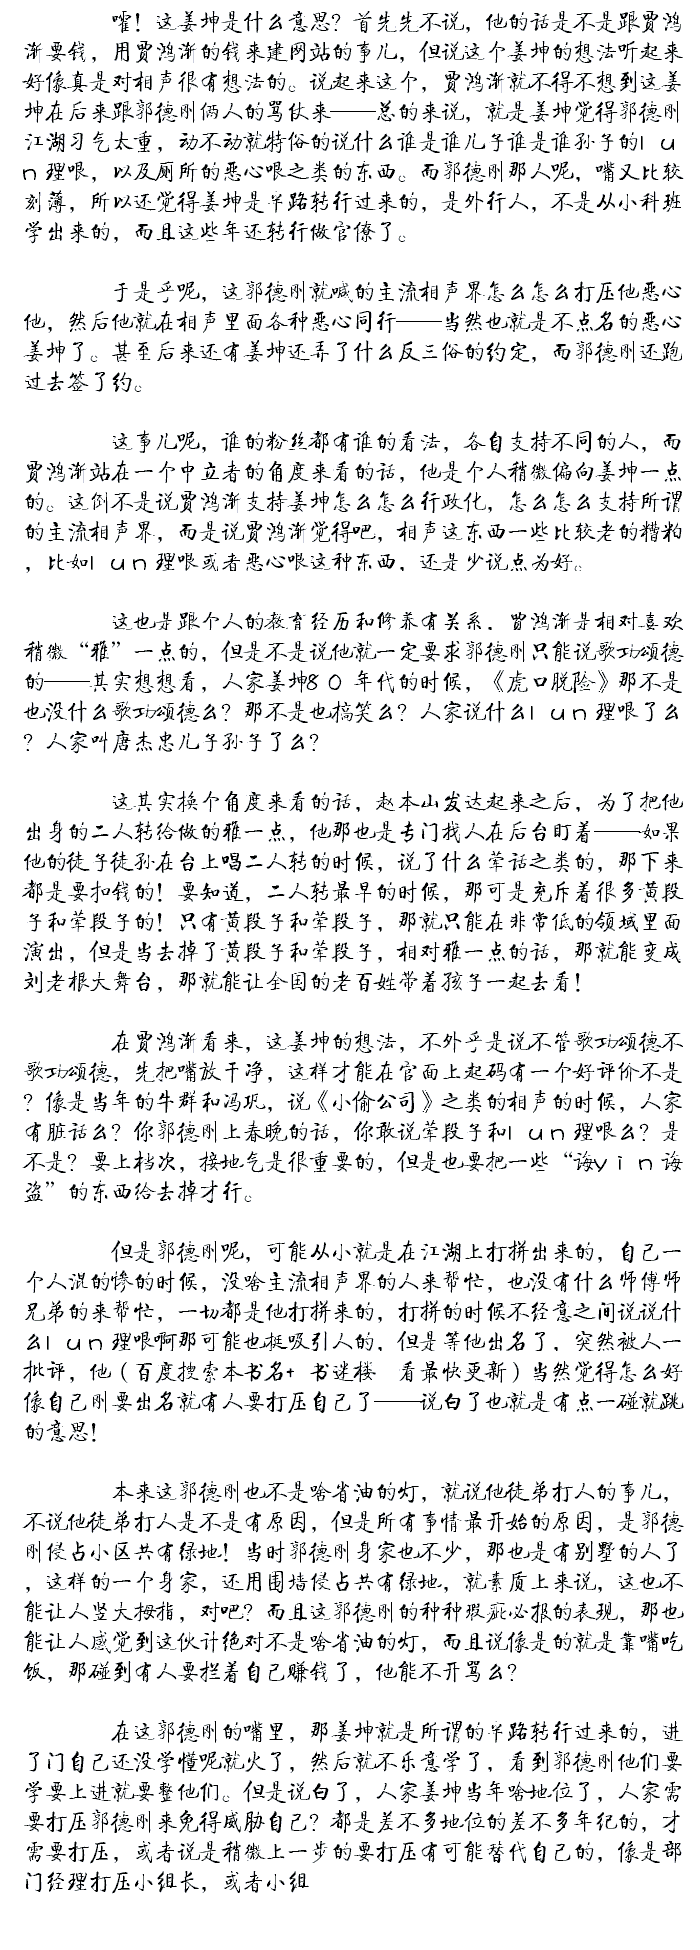 嚯！这姜坤是什么意思？首先先不说，他的话是不是跟贾鸿
渐要钱，用贾鸿渐的钱来建网站的事儿，但说这个姜坤的想法听起来
好像真是对相声很有想法的。说起来这个，贾鸿渐就不得不想到这姜
坤在后来跟郭德刚俩人的骂仗来——总的来说，就是姜坤觉得郭德刚
江湖习气太重，动不动就特俗的说什么谁是谁儿子谁是谁孙子的lu
n理哏，以及厕所的恶心哏之类的东西。而郭德刚那人呢，嘴又比较
刻薄，所以还觉得姜坤是半路转行过来的，是外行人，不是从小科班
学出来的，而且这些年还转行做官僚了。
于是乎呢，这郭德刚就喊的主流相声界怎么怎么打压他恶心
他，然后他就在相声里面各种恶心同行——当然也就是不点名的恶心
姜坤了。甚至后来还有姜坤还弄了什么反三俗的约定，而郭德刚还跑
过去签了约。
这事儿呢，谁的粉丝都有谁的看法，各自支持不同的人，而
贾鸿渐站在一个中立者的角度来看的话，他是个人稍微偏向姜坤一点
的。这倒不是说贾鸿渐支持姜坤怎么怎么行政化，怎么怎么支持所谓
的主流相声界，而是说贾鸿渐觉得吧，相声这东西一些比较老的糟粕
，比如lun理哏或者恶心哏这种东西，还是少说点为好。
这也是跟个人的教育经历和修养有关系．贾鸿渐是相对喜欢
稍微“雅”一点的，但是不是说他就一定要求郭德刚只能说歌功颂德
的——其实想想看，人家姜坤80年代的时候，《虎口脱险》那不是
也没什么歌功颂德么？那不是也搞笑么？人家说什么lun理哏了么
？人家叫唐杰忠儿子孙子了么？
这其实换个角度来看的话，赵本山发达起来之后，为了把他
出身的二人转给做的雅一点，他那也是专门找人在后台盯着——如果
他的徒子徒孙在台上唱二人转的时候，说了什么荤话之类的，那下来
都是要扣钱的！要知道，二人转最早的时候，那可是充斥着很多黄段
子和荤段子的！只有黄段子和荤段子，那就只能在非常低的领域里面
演出，但是当去掉了黄段子和荤段子，相对雅一点的话，那就能变成
刘老根大舞台，那就能让全国的老百姓带着孩子一起去看！
在贾鸿渐看来，这姜坤的想法，不外乎是说不管歌功颂德不
歌功颂德，先把嘴放干净，这样才能在官面上起码有一个好评价不是
？像是当年的牛群和冯巩，说《小偷公司》之类的相声的时候，人家
有脏话么？你郭德刚上春晚的话，你敢说荤段子和lun理哏么？是
不是？要上档次，接地气是很重要的，但是也要把一些“诲yin诲
盗”的东西给去掉才行。
但是郭德刚呢，可能从小就是在江湖上打拼出来的，自己一
个人混的惨的时候，没啥主流相声界的人来帮忙，也没有什么师傅师
兄弟的来帮忙，一切都是他打拼来的，打拼的时候不经意之间说说什
么lun理哏啊那可能也挺吸引人的，但是等他出名了，突然被人一
批评，他（百度搜索本书名+ 书迷楼 看最快更新）当然觉得怎么好
像自己刚要出名就有人要打压自己了——说白了也就是有点一碰就跳
的意思！
本来这郭德刚也不是啥省油的灯，就说他徒弟打人的事儿，
不说他徒弟打人是不是有原因，但是所有事情最开始的原因，是郭德
刚侵占小区共有绿地！当时郭德刚身家也不少，那也是有别墅的人了
，这样的一个身家，还用围墙侵占共有绿地，就素质上来说，这也不
能让人竖大拇指，对吧？而且这郭德刚的种种瑕疵必报的表现，那也
能让人感觉到这伙计绝对不是啥省油的灯，而且说像是的就是靠嘴吃
饭，那碰到有人要拦着自己赚钱了，他能不开骂么？
在这郭德刚的嘴里，那姜坤就是所谓的半路转行过来的，进
了门自己还没学懂呢就火了，然后就不乐意学了，看到郭德刚他们要
学要上进就要整他们。但是说白了，人家姜坤当年啥地位了，人家需
要打压郭德刚来免得威胁自己？都是差不多地位的差不多年纪的，才
需要打压，或者说是稍微上一步的要打压有可能替代自己的，像是部
门经理打压小组长，或者小组